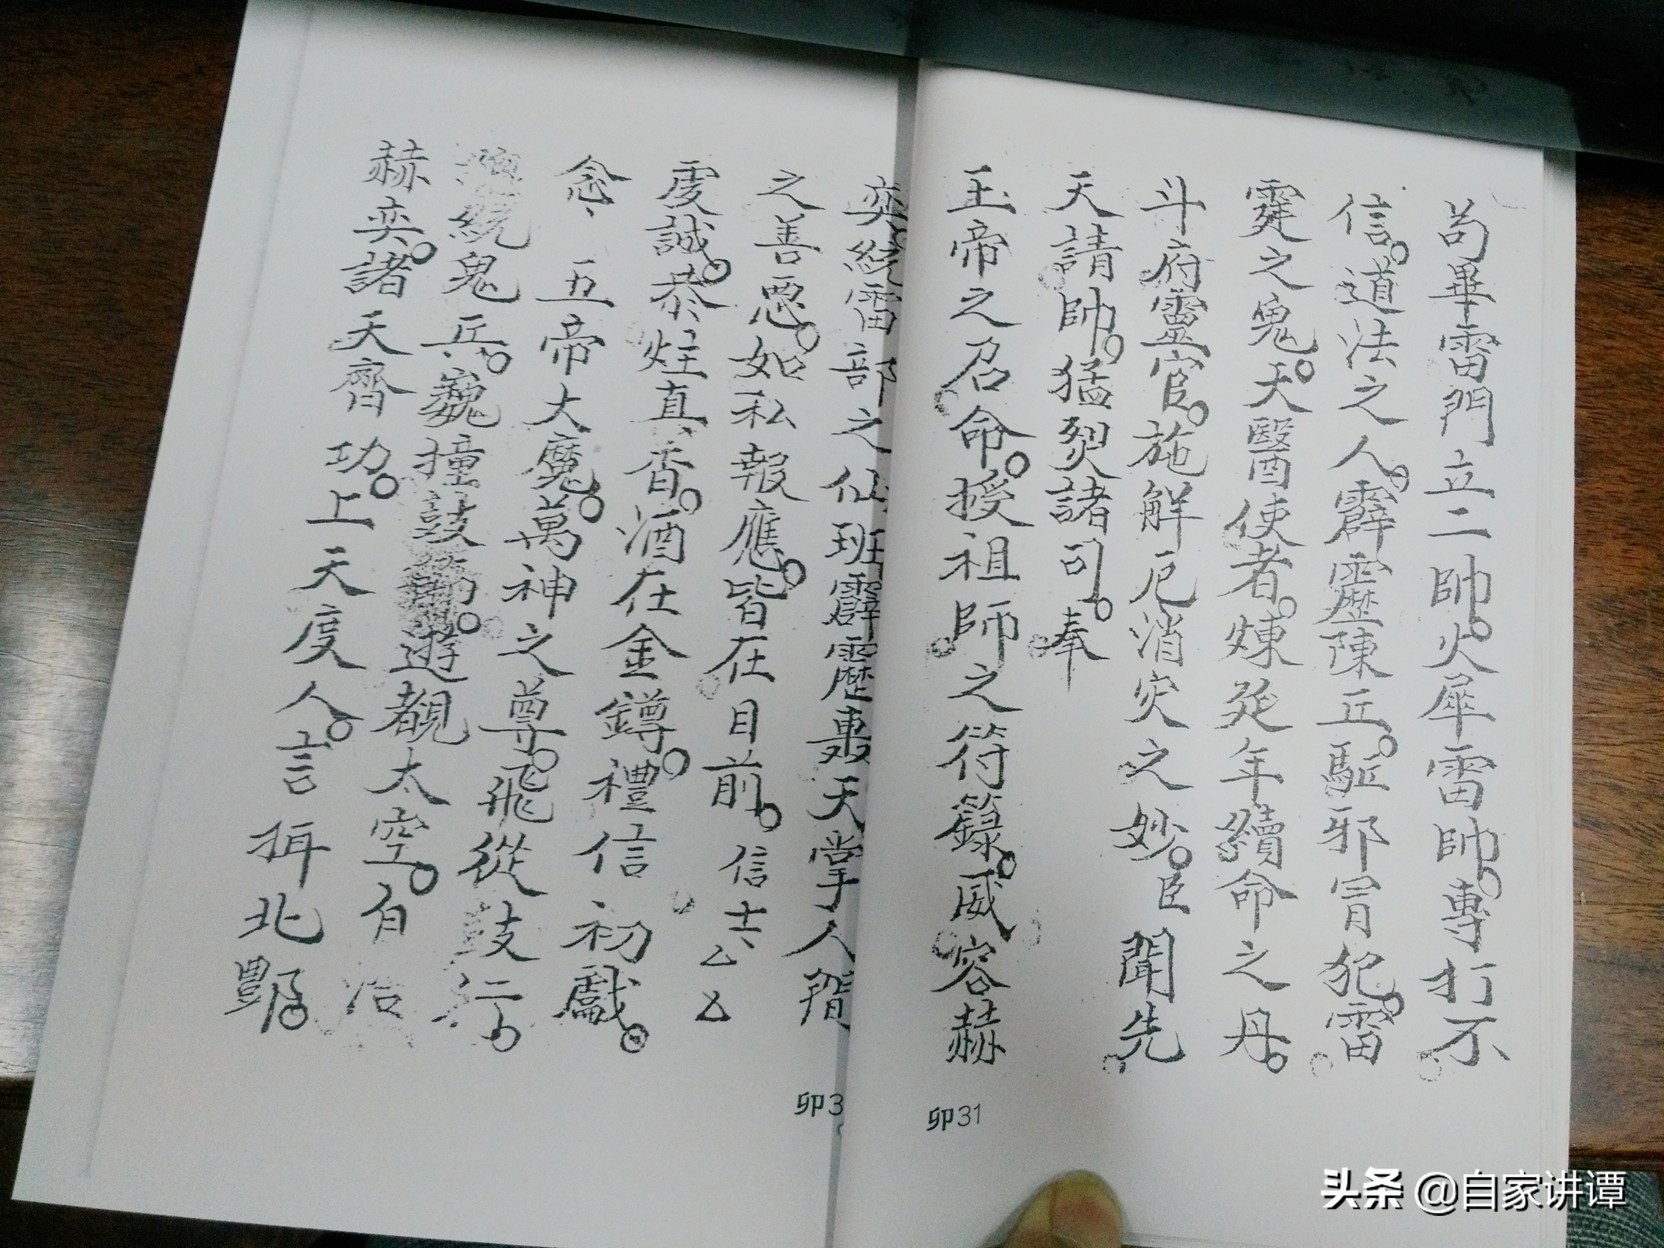 苟畢雷門立二帥。火犀雷帥。專打不
信。道法之人。霹靂陳丘。驅邪冐犯。雷
霆之鬼。天醫使者。煉延年續命之丹。
斗府靈官。施觧厄消灾之妙。臣聞先
天請帥。猛烈諸司。奉
玉帝之召命。授祖師之符籙。威容赫
奕。統雷部之仙班。霹靂轟天掌人間
之善惡。如私報應。皆在目前。信士厶厶
虔誠。恭炷真香。酒在金鐏。禮信初獻。
念、五帝大魔。萬神之尊。飛從鼓行。
統鬼兵。巍撞鼓。遊觀太空。自
赫奕。諸天齊功。上天度人。言揖北酆。
卯3
卯31
头条 @自家讲谭